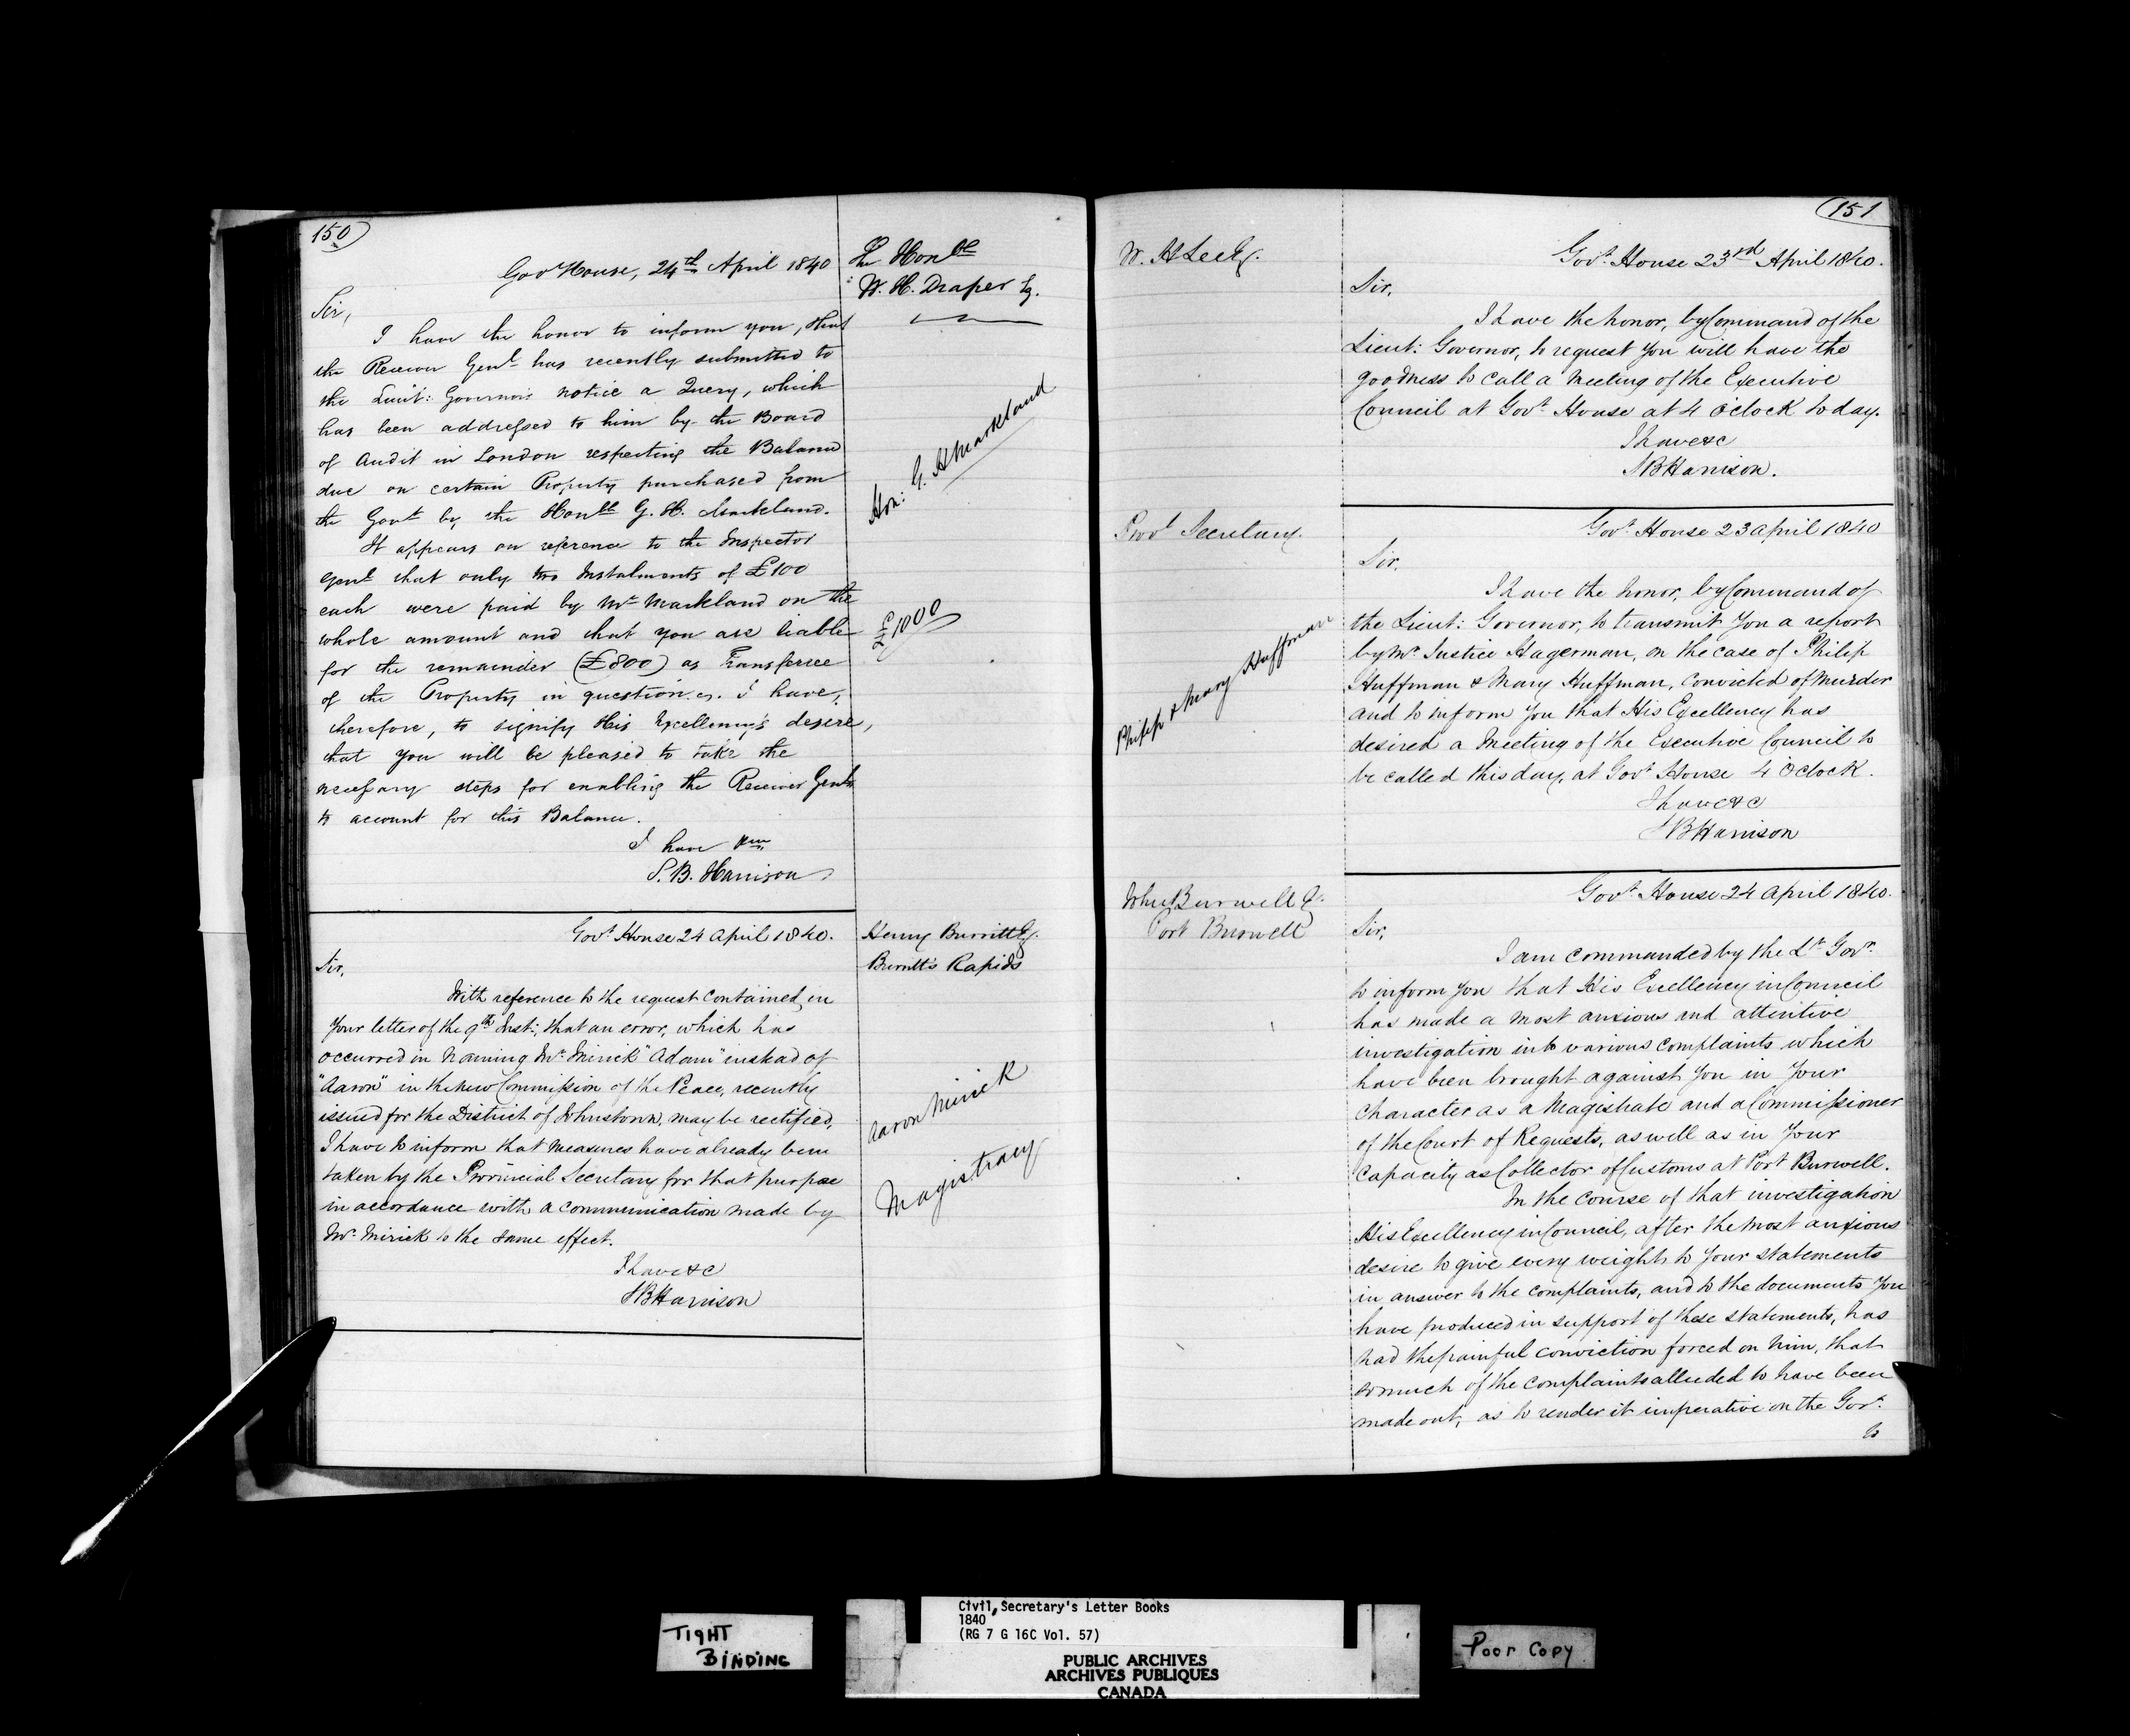 150
Govt House, 24th April 1840
The Honble
W. H. Draper Eq.
Sir,
I have the honor to inform you, that
the Receiver Genl has recently submitted to
the Lieut: Governor's notice a Query, which
has been addressed to him by the Board
of Audit in London respecting the Balance
due on certain Property purchased from
the Govt by the Honble G. H. Markland.
It appears on reference to the Inspector
Genl that only two Instalments of £100
each were paid by Mr Markland on the
whole amount and that you are liable
for the remainder (£800) as Transferree
of the Property in question. I have,
therefore, to signify His Excellency's desire,
that you will be pleased to take the
necessary steps for enabling the Receiver Genl
to account for this Balance.
I have
S. B. Harrison
Hon: G. H Markland
£1000
Govt House 24 April 1840.
Henry Burritt Eq.
Burritt's Rapids
Sir,
With reference to the request contained in
Your letter of the 9th Inst:, that an error, which has
occurred in naming Mr Mirick "Adam" instead of
"Aaron" in the new Commission of the Peace, recently
issued for the District of Johnstown, may be rectified,
I have to inform that measures have already been
taken by the Provincial Secretary for that purpose
in accordance with a communication made by
Mr Mirick to the same effect.
I have &c
SBHarrison
Aaron Mirick
Magistracy
151
W. H Lee Eq.
Govt House 23rd April 1840.
Sir,
I have the honor, by Command of the
Lieut: Governor, to request You will have the
goodness to call a Meeting of the Executive
Council at Govt House at 4 O'Clock to day.
I have &c
SBHarrison.
Provl Secretary.
Govt House 23 April 1840
Sir,
I have the honor, by Command of
the Lieut: Governor, to transmit You a report
by Mr Justice Hagerman, on the case of Philip
Huffman & Mary Huffman, convicted of Murder
and to inform You that His Excellency has
desired a Meeting of the Executive Council to
be called this day, at Govt House 4 O'Clock.
I have &c
SBHarrison
Philip & Mary Huffman
John Burwell Eq.
Port Burwell
Govt House 24 April 1840.
Sir,
I am commanded by the Lt Govr
to inform You that His Excellency in Council
has made a most anxious and attentive
investigation into various complaints which
have been brought against You in Your
character as a Magistrate and a Commissioner
of the Court of Requests, as well as in Your
capacity as Collector of Customs at Port Burwell.
In the course of that investigation
His Excellency in Council, after the most anxious
desire to give every weight to Your statements
in answer to the complaints, and to the documents You
have produced in support of these statements, has
had the painful conviction forced on him, that
so much of the complaints alluded to have been
made out, as to render it imperative on the Govt
to
TIGHT
BINDING
Civil Secretary's Letter Books
1840
(RG 7 G 16C Vol. 57)
PUBLIC ARCHIVES
ARCHIVES PUBLIQUES
CANADA
Poor Copy